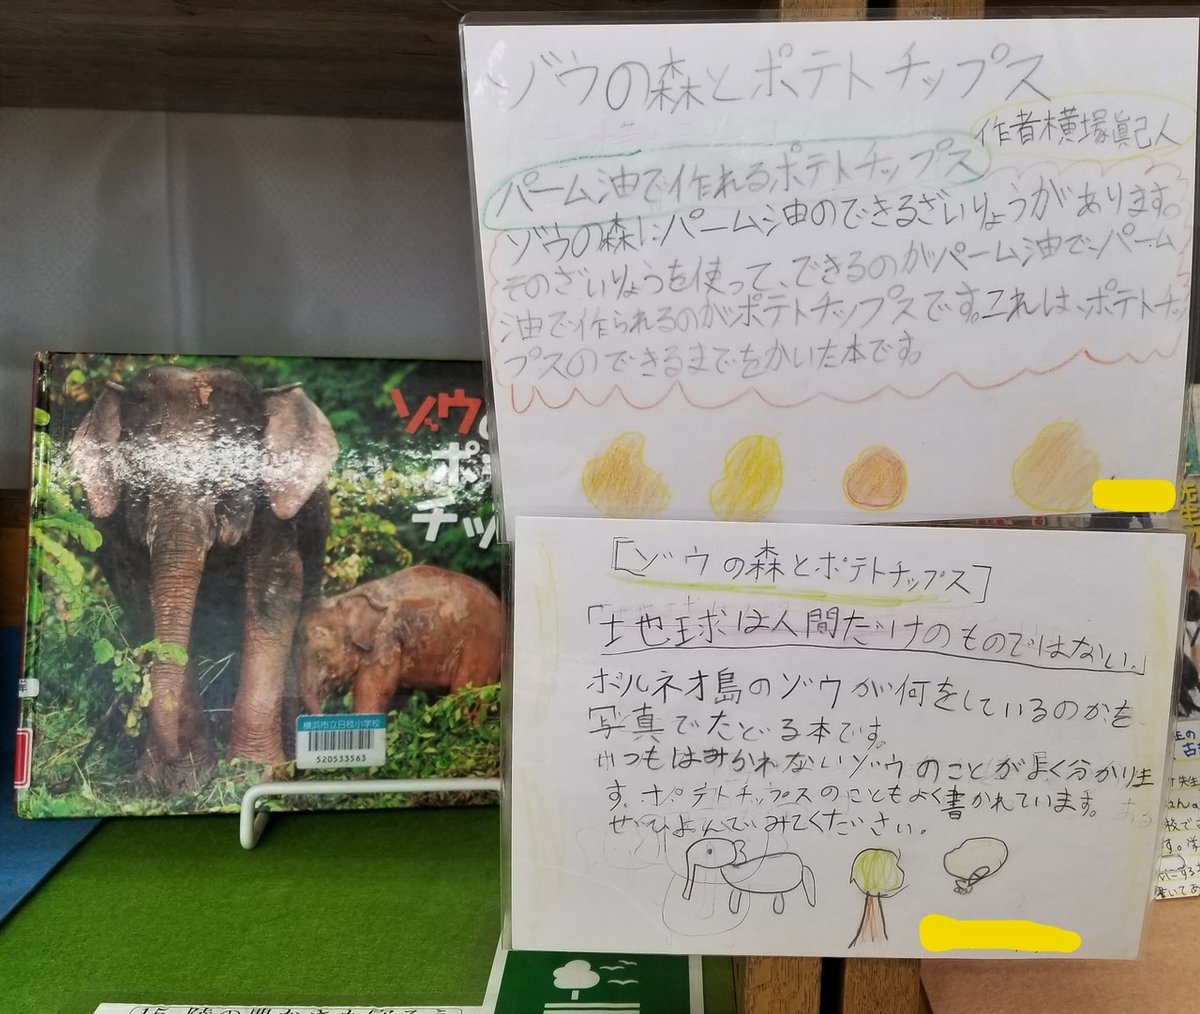 ゾウの森とポテトチップス
作者横塚眞己人
パーム油で作れるポテトチップス
ゾウの森にパーム油のできるざいりょうがあります。
そのざいりょうを使って、できるのがパーム油でパーム
油で作られるのがポテトチップスです。これは、ポテトチッ
プスのできるまでをかいた本です。
ゾウ
ポ
チッ
横浜市立日枝小学校
520533563
[ゾウの森とポテトチップス]
「地球は人間だけのものではない。」
ボルネオ島のゾウが何をしているのかを
写真でたどる本です。
いつもはみかれないゾウのことがよく分かりま
す。ポテトチップスのこともよく書かれています。
ぜひよんでみてください。